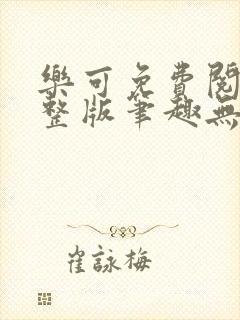 樂可免費閱
整版筆趣無
崔詠梅